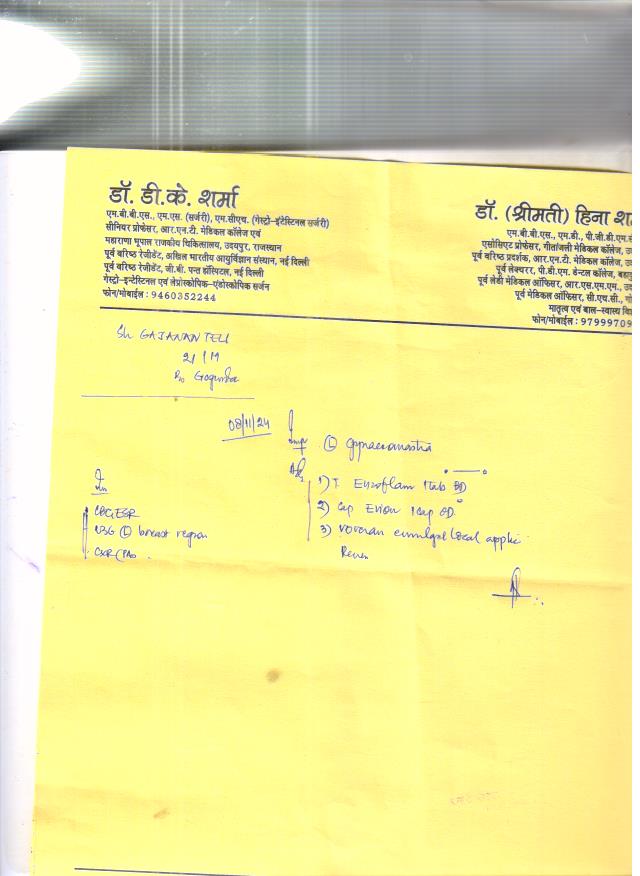 डॉ. डी.के. शर्मा
एम.बी.बी.एस., एम.एस. (सर्जरी), एम.सीएच. (गेस्ट्रो-इंटेस्टिनल सर्जरी)
सीनियर प्रोफेसर, आर.एन.टी. मेडिकल कॉलेज एवं
महाराणा भूपाल राजकीय चिकित्सालय, उदयपुर, राजस्थान
पूर्व वरिष्ठ रेजीडेंट, अखिल भारतीय आयुर्विज्ञान संस्थान, नई दिल्ली
पूर्व वरिष्ठ रेजीडेंट, जी.बी. पन्त हॉस्पिटल, नई दिल्ली
गेस्ट्रो-इन्टेस्टिनल एवं लेप्रोस्कोपिक-एंडोस्कोपिक सर्जन
फोन/मोबाईल : 9460352244
डॉ. (श्रीमती) हिना शर्
एम.बी.बी.एस., एम.डी., पी.जी.डी.एम.
एसोसिएट प्रोफेसर, गीतांजली मेडिकल कॉलेज, उ
पूर्व वरिष्ठ प्रदर्शक, आर.एन.टी. मेडिकल कॉलेज, उद
पूर्व लेक्चरर, पी.डी.एम. डेन्टल कॉलेज, बहादु
पूर्व लेडी मेडिकल ऑफिसर, आर.एस.एम.एम., उद
पूर्व मेडिकल ऑफिसर, सी.एच.सी., गो
मातृत्व एवं बाल-स्वास्थ्य वि
फोन/मोबाईल : 97999709
Sh GAJANAN TELI
21 / M
R/o Gogunda
08/11/24
Ⓛ gynaecomastia
1) T. Enzoflam 1tab BD
2) Cap Evion 1cap OD
3) Voveran emulgel local applic
Review
CBC, ESR
USG Ⓛ breast region
CXR (PA)